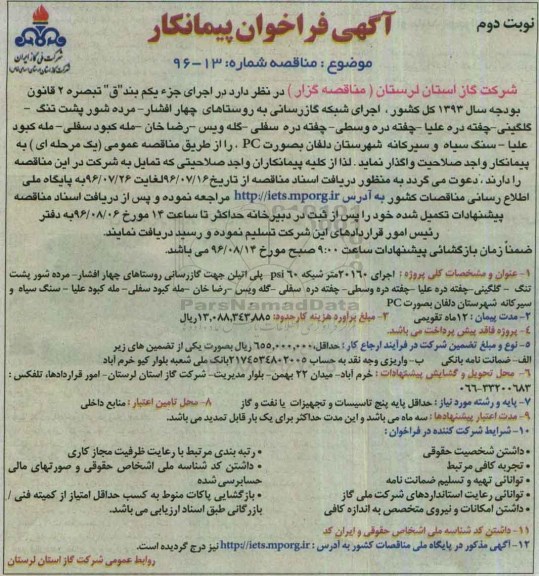 نوبت دوم
آگهی فراخوان پیمانکار
موضوع : مناقصه شماره: ۱۳-۹۶
شرکت ملی گاز ایران
شرکت گاز استان لرستان ( مناقصه گزار ) در نظر دارد در اجرای جزء یکم بند"ق" تبصره ۲ قانون
بودجه سال ۱۳۹۳ کل کشور ، اجرای شبکه گازرسانی به روستاهای چهار افشار- مرده شور پشت تنگ -
گلگینی-چفته دره علیا -چفته دره وسطی- چفته دره سفلی -گله ویس -رضا خان -مله کبود سفلی- مله کبود
علیا - سنگ سیاه و سیرکانه شهرستان دلفان بصورت PC ، را از طریق مناقصه عمومی (یک مرحله ای ) به
پیمانکار واجد صلاحیت واگذار نماید . لذا از کلیه پیمانکاران واجد صلاحیتی که تمایل به شرکت در این مناقصه
را دارند ، دعوت می گردد به منظور دریافت اسناد مناقصه از تاریخ۹۶/۰۷/۱۶لغایت ۹۶/۰۷/۲۶ به پایگاه ملی
اطلاع رسانی مناقصات کشور به آدرس http://iets.mporg.ir مراجعه نموده و پس از دریافت اسناد مناقصه
پیشنهادات تکمیل شده خود را پس از ثبت در دبیرخانه حداکثر تا ساعت ۱۴ مورخ ۹۶/۰۸/۰۶به دفتر
رئیس امور قراردادهای این شرکت تسلیم نموده و رسید دریافت نمایند.
ضمناً زمان بازگشائی پیشنهادات ساعت ۹:۰۰ صبح مورخ ۹۶/۰۸/۱۴ می باشد.
۱- عنوان و مشخصات کلی پروژه : اجرای ۲۰۱۶۰متر شبکه ۶۰ psi پلی اتیلن جهت گازرسانی روستاهای چهار افشار- مرده شور پشت
تنگ - گلگینی- چفته دره علیا -چفته دره وسطی- چفته دره سفلی -گله ویس -رضا خان -مله کبود سفلی- مله کبود علیا - سنگ سیاه و
سیرکانه شهرستان دلفان بصورت PC
ParsNamadData
۲- مدت پیمان : ۱۲ماه تقویمی ۳- مبلغ برآورد هزینه کارحدود: ۱۳،۰۸۸،۳۴۳،۸۸۵ریال
۴- پروژه فاقد پیش پرداخت می باشد.
۵- نوع و مبلغ تضمین شرکت در فرآیند ارجاع کار : حداقل ۶۵۵،۰۰۰،۰۰۰ ریال بصورت یکی از تضمین های زیر
الف- ضمانت نامه بانکی ب- واریزی وجه نقد به حساب ۲۱۷۴۵۳۴۸۰۲۰۰۵بانک ملی شعبه بلوار کیو خرم آباد
۶- محل تحویل و گشایش پیشنهادات : خرم آباد- میدان ۲۲ بهمن- بلوار مدیریت- شرکت گاز استان لرستان- امور قراردادها، تلفکس :
۰۶۶-۳۳۲۰۰۶۸۳
۷- پایه و رشته مورد نیاز : حداقل پایه پنج تاسیسات و تجهیزات یا نفت و گاز ۸- محل تامین اعتبار : منابع داخلی
۹- مدت اعتبار پیشنهادها : سه ماه می باشد و این مدت حداکثر برای یک بار قابل تمدید می باشد.
۱۰- شرایط شرکت کننده در فراخوان :
• داشتن شخصیت حقوقی
• تجربه کافی مرتبط
• توانائی تهیه و تسلیم ضمانت نامه
• توانائی رعایت استانداردهای شرکت ملی گاز
• داشتن امکانات و نیروی متخصص به اندازه کافی
• رتبه بندی مرتبط با رعایت ظرفیت مجاز کاری
• داشتن کد شناسه ملی اشخاص حقوقی و صورتهای مالی
حسابرسی شده
• بازگشایی پاکات منوط به کسب حداقل امتیاز از کمیته فنی /
بازرگانی طبق اسناد ارزیابی می باشد.
۱۱- داشتن کد شناسه ملی اشخاص حقوقی و ایران کد
۱۲- آگهی مذکور در پایگاه ملی مناقصات کشور به آدرس : http://iets.mporg.ir نیز درج گردیده است.
روابط عمومی شرکت گاز استان لرستان